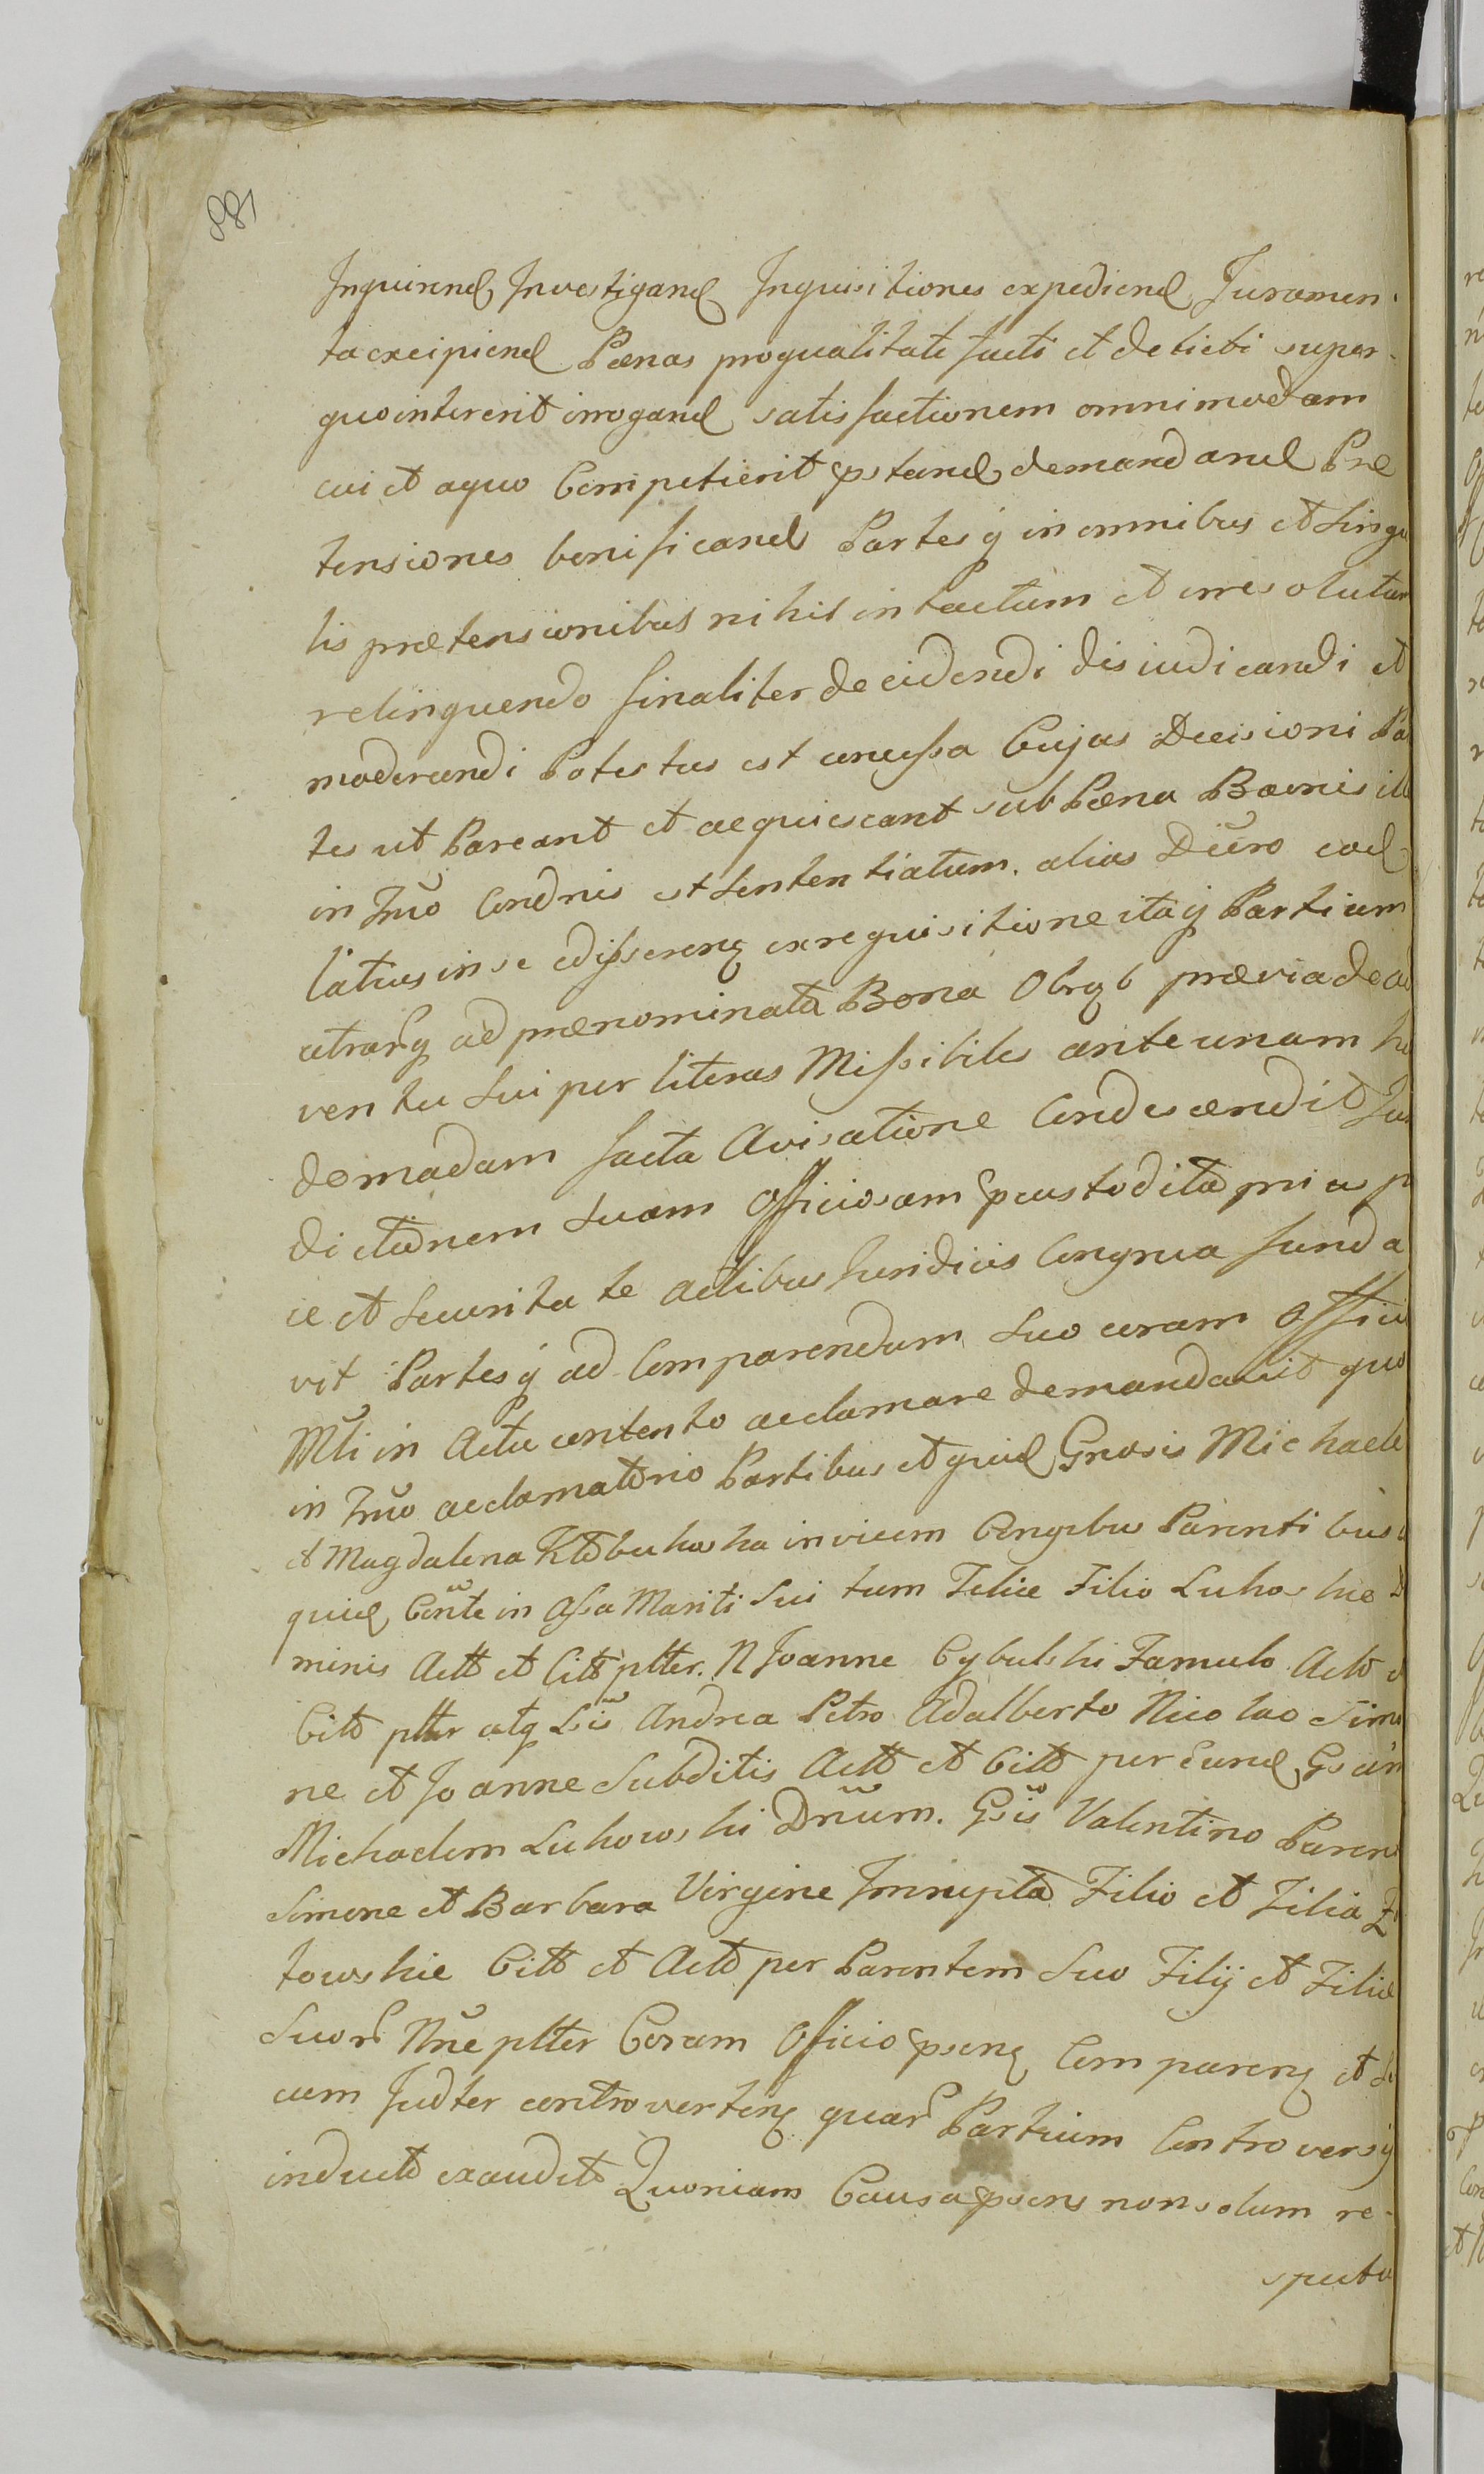 881
Inquirend Investigand Inquisitiones expediend Juramen-
ta excipiend Pœnas pro qualitate facti et delicti super
quo intererit irrogand satisfactionem omnimodam
cui et a quo Competierit pstand demandand Præ
tensiones bonificand Partesq in omnibus et Singu
lis prætensionibus nihil intactum et irresolutum
relinquendo finaliter decidendi disiudicandi et
moderandi Potestas est concessa Cujus Decisioni Par
tes ut Pareant et acquiescant sub Pæna Bannis ill
in Tmo Condnis est Sententiatum. alias Decro eod
latius in se edisseren ex requisitione itaq Partium
utrarq ad prænominata Bona Obrąb prævia de ad
ventu Sui per literas Missibiles ante unam he
domadam facta Avisatione Condescendit Juris
dictionem Suam Officiosam pcustodita prius p
ce et Securitate actibus Juridicis Congrua funda
vit Partesq ad Comparendum Suo coram Officio
Mti in Actu contento acclamare demandavit quo
in Tmo acclamatorio Partibus et quid Gnosis Michaele
et Magdalena Kłobukoska invicem Cngibus Parentibus
quid Cönte in Assa Mariti Sui tum Felice Filio Lukoskie
minis Actt et Citt plter. N Joanne Cybulski Famulo Acto et
Cito plter atq Lis Andrea Petro Adalberto Nicolao Simo
ne et Joanne Subditis Actt et Citt per eund Gsum
Michaelem Lukowski Dnum. Gsis Valentino Paren
Simone et Barbara Virgine Innupta Filio et Filia
towskie Citt et Actt per Parentem Suo Filij et Filiæ
Suor Nne plter Coram Officio psen Comparen et
cum Judter controverten quar Partium Controversij
induct exaudit Quoniam Causa psens non solum re-
specta